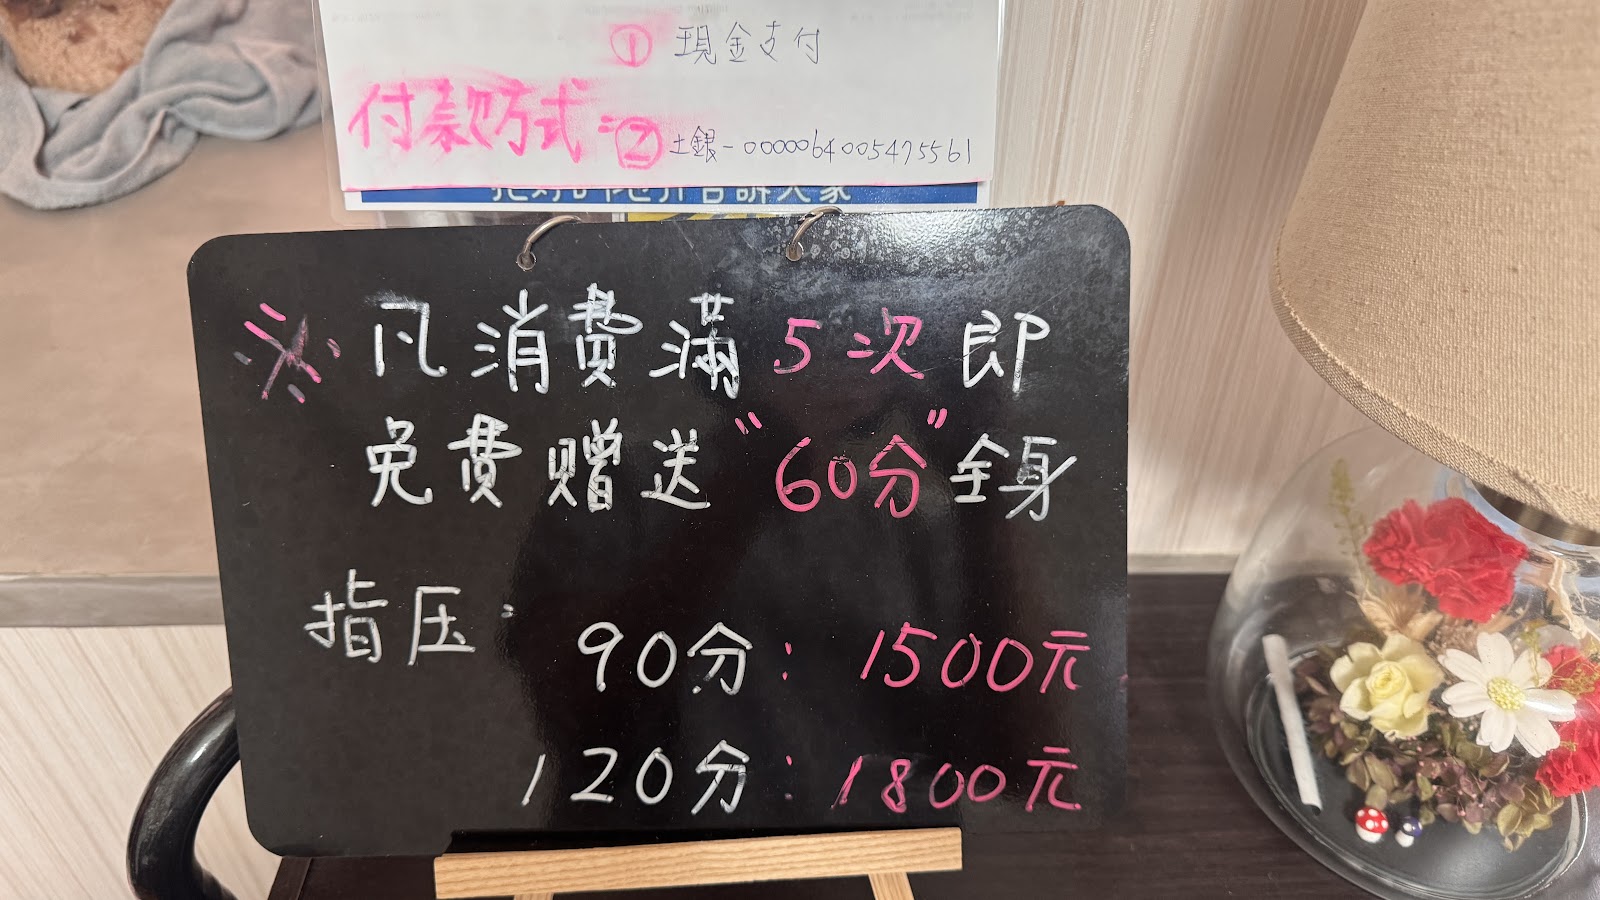 ① 現金支付
付款方式：② 土銀-0000064005475561
告訴大家
※ 凡消費滿5次即
免費贈送"60分"全身
指压：
90分：1500元
120分：1800元